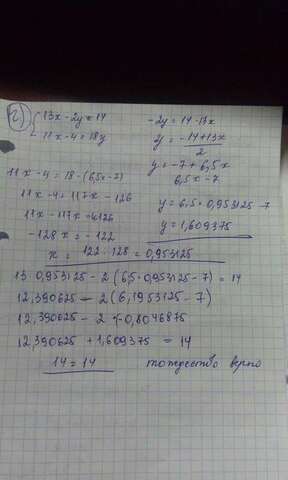 2) { 13x - 2y = 14
11x - 4 = 18y
-2y = 14 - 13x
y = -14 + 13x / 2
y = -7 + 6,5x
6,5x - 7
11x - 4 = 18 · (6,5x - 7)
11x - 4 = 117x - 126
11x - 117x = 4126
-128x = -122
x = 122 : 128 = 0,953125
y = 6,5 · 0,953125 - 7
y = 1,609375
13 · 0,953125 - 2 (6,5 · 0,953125 - 7) = 14
12,390625 - 2 (6,1953125 - 7)
12,390625 - 2 · (-0,8046875
12,390625 + 1,609375 = 14
14 = 14 тождество верно